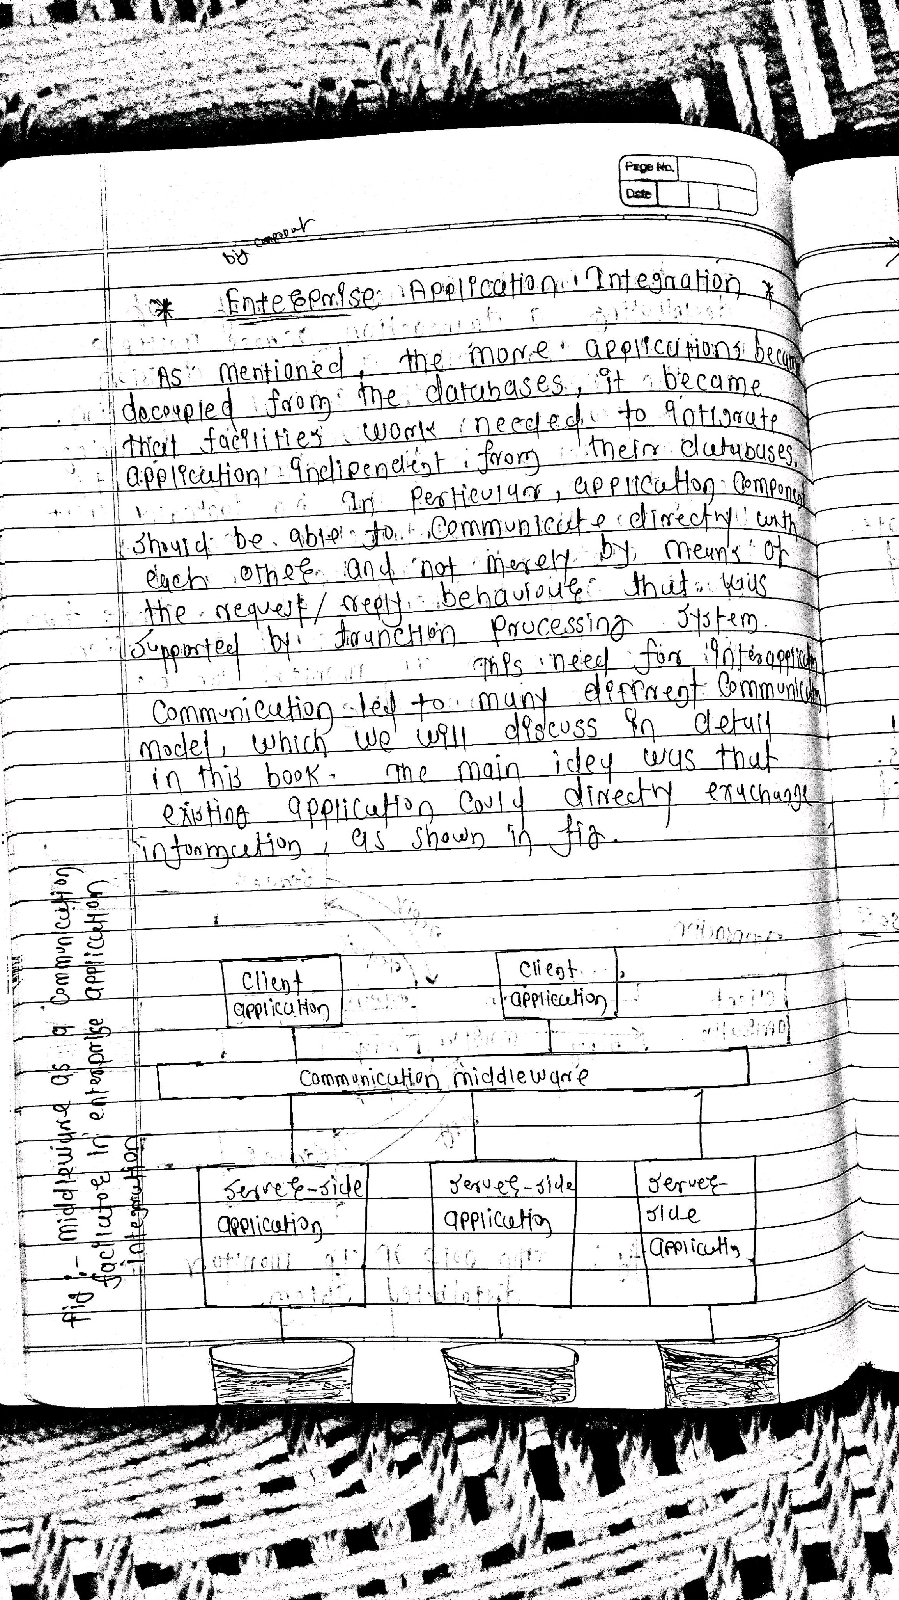 Page No.
Date
by component
* Enterprise Application Integration *
As mentioned, the more applications became
decoupled from the databases, it became
that facilities work needed to intigrate
application indipendent from their databases.
In perticular, application component
should be able to communicate directly with
each other and not merely by means of
the request/reply behaviour that was
supported by trunction processing system.
This need for interapplication
Communication led to many different Communication
model, which we will discuss in detail
in this book. The main idea was that
existing application could directly exuchange
information, as shown in fig.
Client
application
Client
application
Communication middleware
Server-side
application
Server-side
application
Server-
side
application
fig :- Middleware as a Communication
facilitator in enterprise application
integration